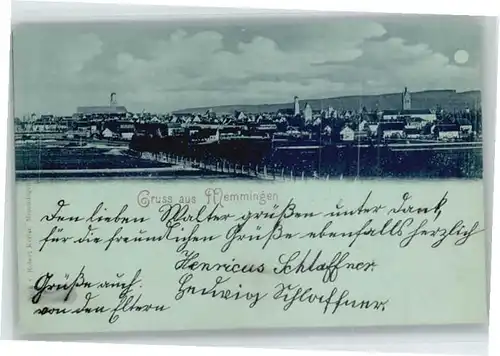 Gruss aus Memmingen
Den lieben Walter grüßen unter Dank
für die freundlichen Grüße ebenfalls herzlich
Henricus Schlaffner.
Hedwig Schlaffner.
Grüße auch
von den Eltern